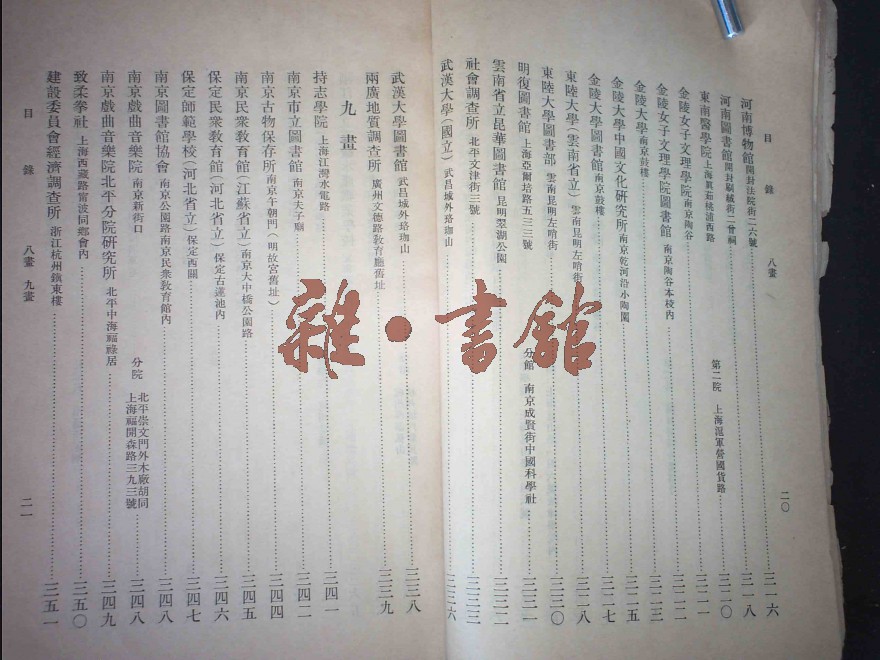 目　錄　八畫　二〇
河南博物館 開封法院街二六號 三一六
河南圖書館 開封刷絨街二曾祠 三一八
東南醫學院 上海眞茹桃浦西路 第二院　上海滬軍營國貨路 三二〇
金陵女子文理學院 南京陶谷 三二一
金陵女子文理學院圖書館 南京陶谷本校內 三二二
金陵大學 南京鼓樓 三二三
金陵大學中國文化研究所 南京乾河沿小陶園 三二五
金陵大學圖書館 南京鼓樓 三二七
東陸大學(雲南省立) 雲南昆明左哨街 三二八
東陸大學圖書部 雲南昆明左哨街 三三〇
明復圖書館 上海亞爾培路五三三號 分館　南京成賢街中國科學社 三三一
雲南省立昆華圖書館 昆明翠湖公園 三三二
社會調查所 北平文津街三號 三三三
武漢大學(國立) 武昌城外珞珈山 三三六
武漢大學圖書館 武昌城外珞珈山 三三八
兩廣地質調查所 廣州文德路敎育廳舊址 三三九
九畫
持志學院 上海江灣水電路 三四一
南京市立圖書館 南京夫子廟 三四四
南京古物保存所 南京午朝門(明故宮舊址) 三四四
南京民衆敎育館(江蘇省立) 南京大中橋公園路 三四五
保定民衆敎育館(河北省立) 保定古蓮池內 三四六
保定師範學校(河北省立) 保定西關 三四七
南京圖書館協會 南京公園路南京民衆敎育館內 三四八
南京戲曲音樂院 南京新街口 分院 北平崇文門外木廠胡同 上海福開森路三九三號 三四八
南京戲曲音樂院北平分院研究所 北平中海福祿居 三四九
致柔拳社 上海西藏路甯波同鄉會內 三五〇
建設委員會經濟調查所 浙江杭州鐵東樓 三五一
目　錄　八畫　九畫　二一
雜·書館